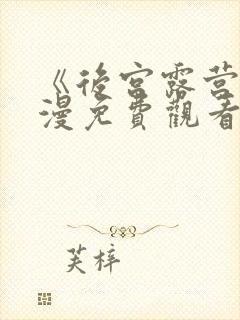 《後宮露营
漫免費觀看
芙梓